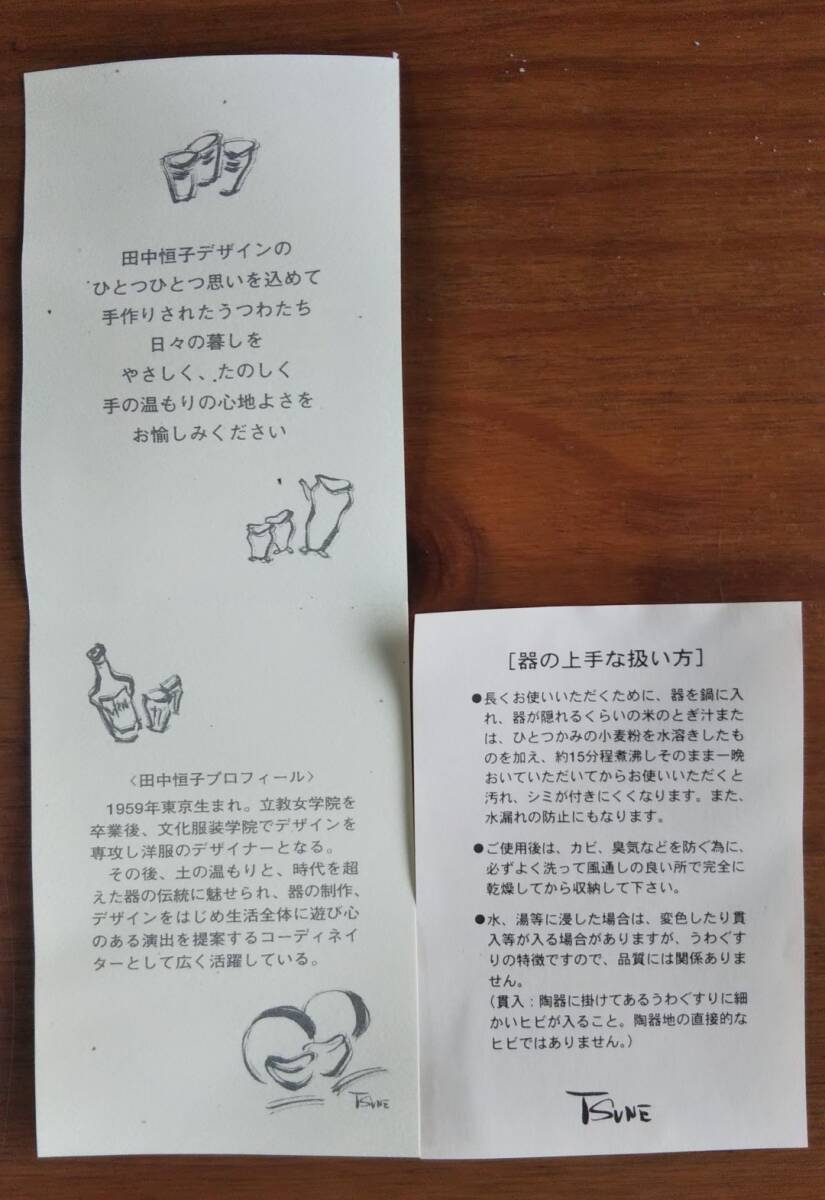 田中恒子デザインの
ひとつひとつ思いを込めて
手作りされたうつわたち
日々の暮しを
やさしく、たのしく
手の温もりの心地よさを
お愉しみください
〈田中恒子プロフィール〉
1959年東京生まれ。立教女学院を
卒業後、文化服装学院でデザインを
専攻し洋服のデザイナーとなる。
その後、土の温もりと、時代を超
えた器の伝統に魅せられ、器の制作、
デザインをはじめ生活全体に遊び心
のある演出を提案するコーディネイ
ターとして広く活躍している。
TSUNE
［器の上手な扱い方］
●長くお使いいただくために、器を鍋に入
れ、器が隠れるくらいの米のとぎ汁また
は、ひとつかみの小麦粉を水溶きしたも
のを加え、約15分程煮沸しそのまま一晩
おいていただいてからお使いいただくと
汚れ、シミが付きにくくなります。また、
水漏れの防止にもなります。
●ご使用後は、カビ、臭気などを防ぐ為に、
必ずよく洗って風通しの良い所で完全に
乾燥してから収納して下さい。
●水、湯等に浸した場合は、変色したり貫
入等が入る場合がありますが、うわぐす
りの特徴ですので、品質には関係ありま
せん。
（貫入：陶器に掛けてあるうわぐすりに細
かいヒビが入ること。陶器地の直接的な
ヒビではありません。）
TSUNE